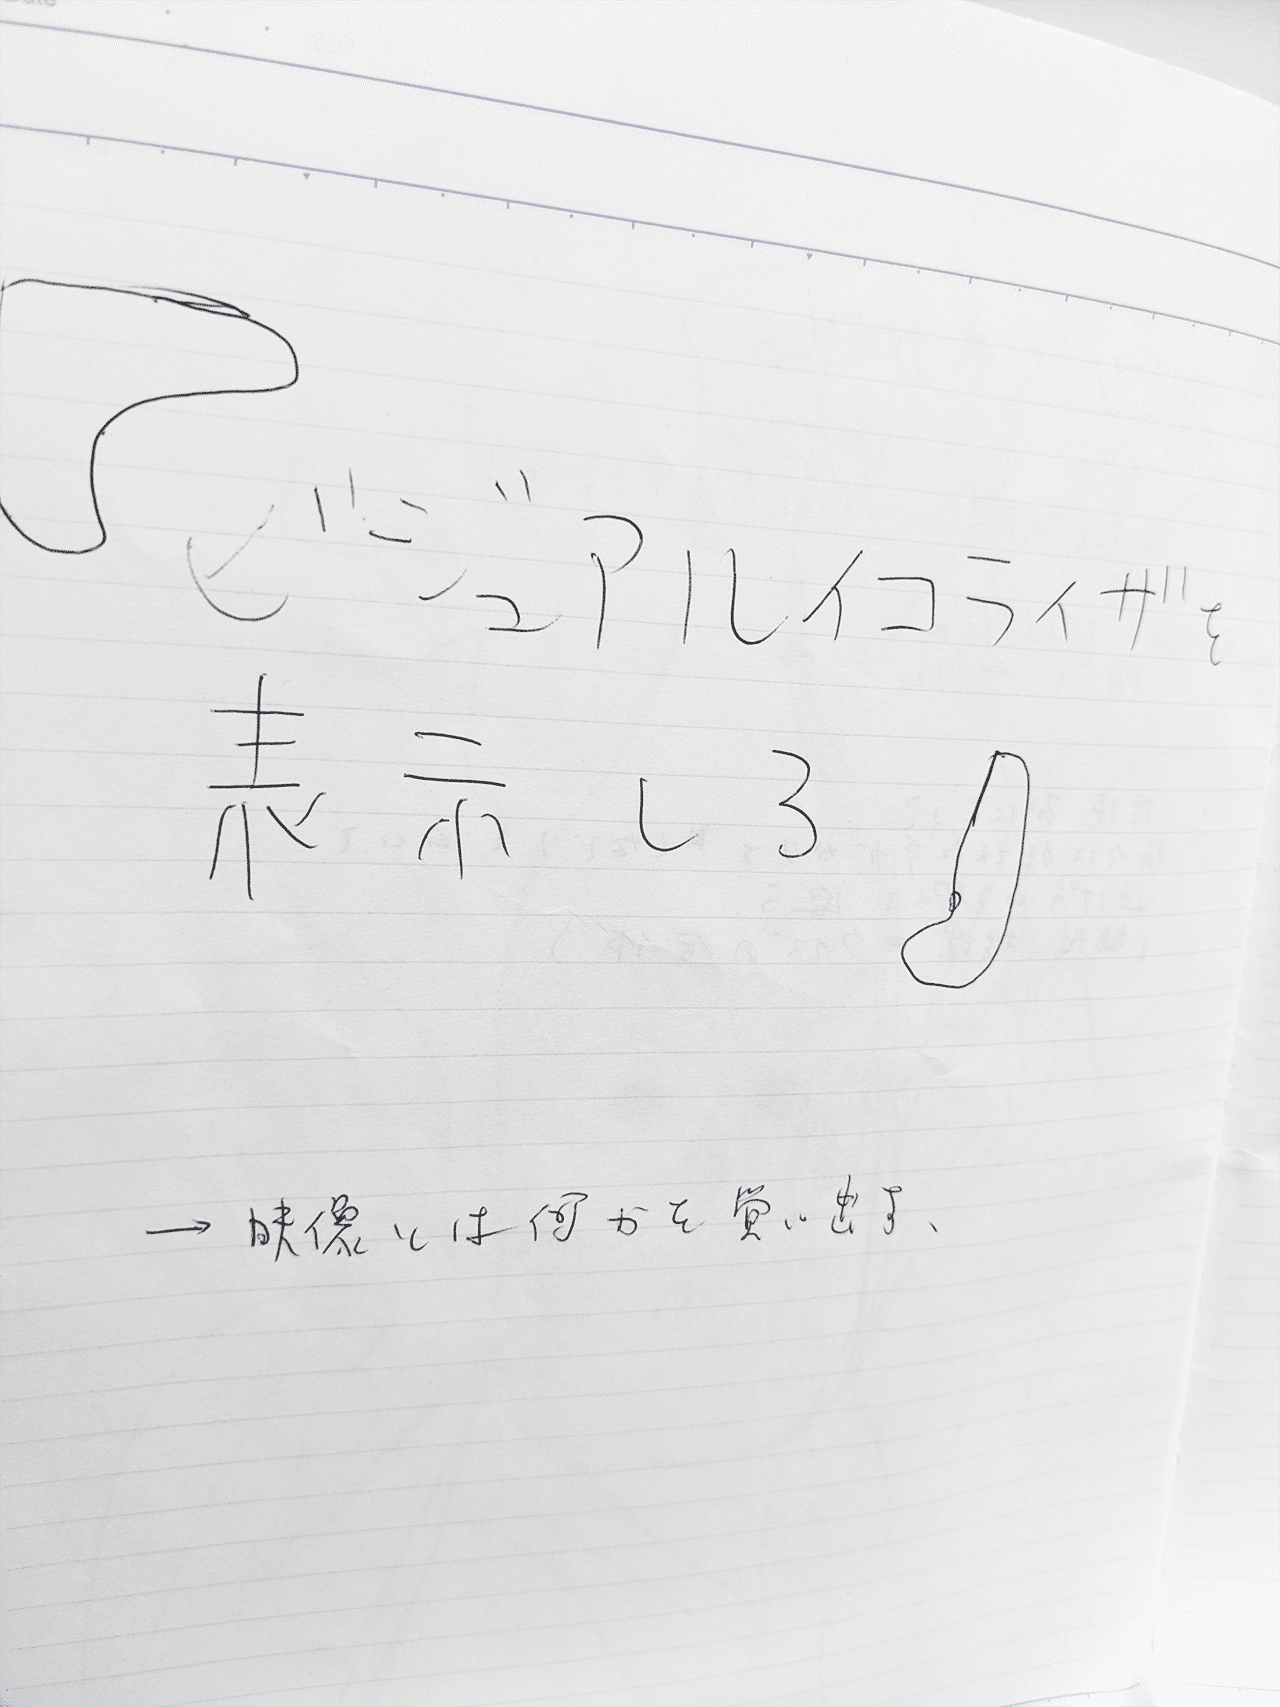 「ビジュアルイコライザを
表示しろ」
→ 映像とは何かを覚い出す、